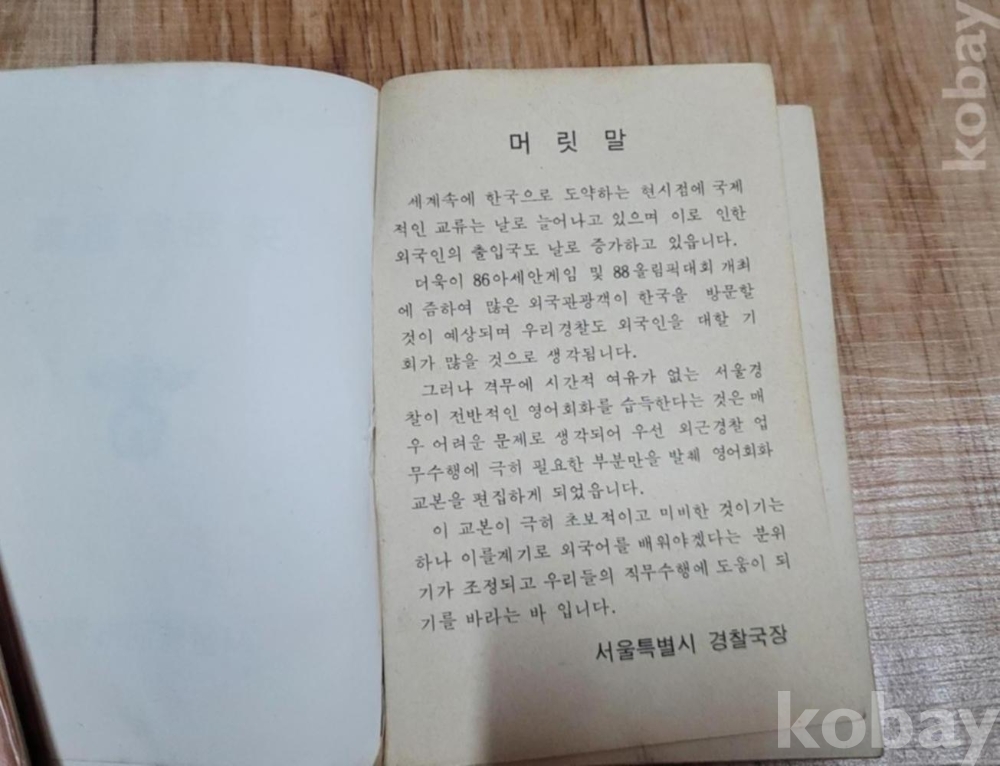 머 릿 말
세계속에 한국으로 도약하는 현시점에 국제
적인 교류는 날로 늘어나고 있으며 이로 인한
외국인의 출입국도 날로 증가하고 있읍니다.
더욱이 86아세안게임 및 88올림픽대회 개최
에 즘하여 많은 외국관광객이 한국을 방문할
것이 예상되며 우리경찰도 외국인을 대할 기
회가 많을 것으로 생각됩니다.
그러나 격무에 시간적 여유가 없는 서울경
찰이 전반적인 영어회화를 습득한다는 것은 매
우 어려운 문제로 생각되어 우선 외근경찰 업
무수행에 극히 필요한 부분만을 발췌 영어회화
교본을 편집하게 되었읍니다.
이 교본이 극히 초보적이고 미비한 것이기는
하나 이를계기로 외국어를 배워야겠다는 분위
기가 조정되고 우리들의 직무수행에 도움이 되
기를 바라는 바 입니다.
서울특별시 경찰국장
kobay
kobay